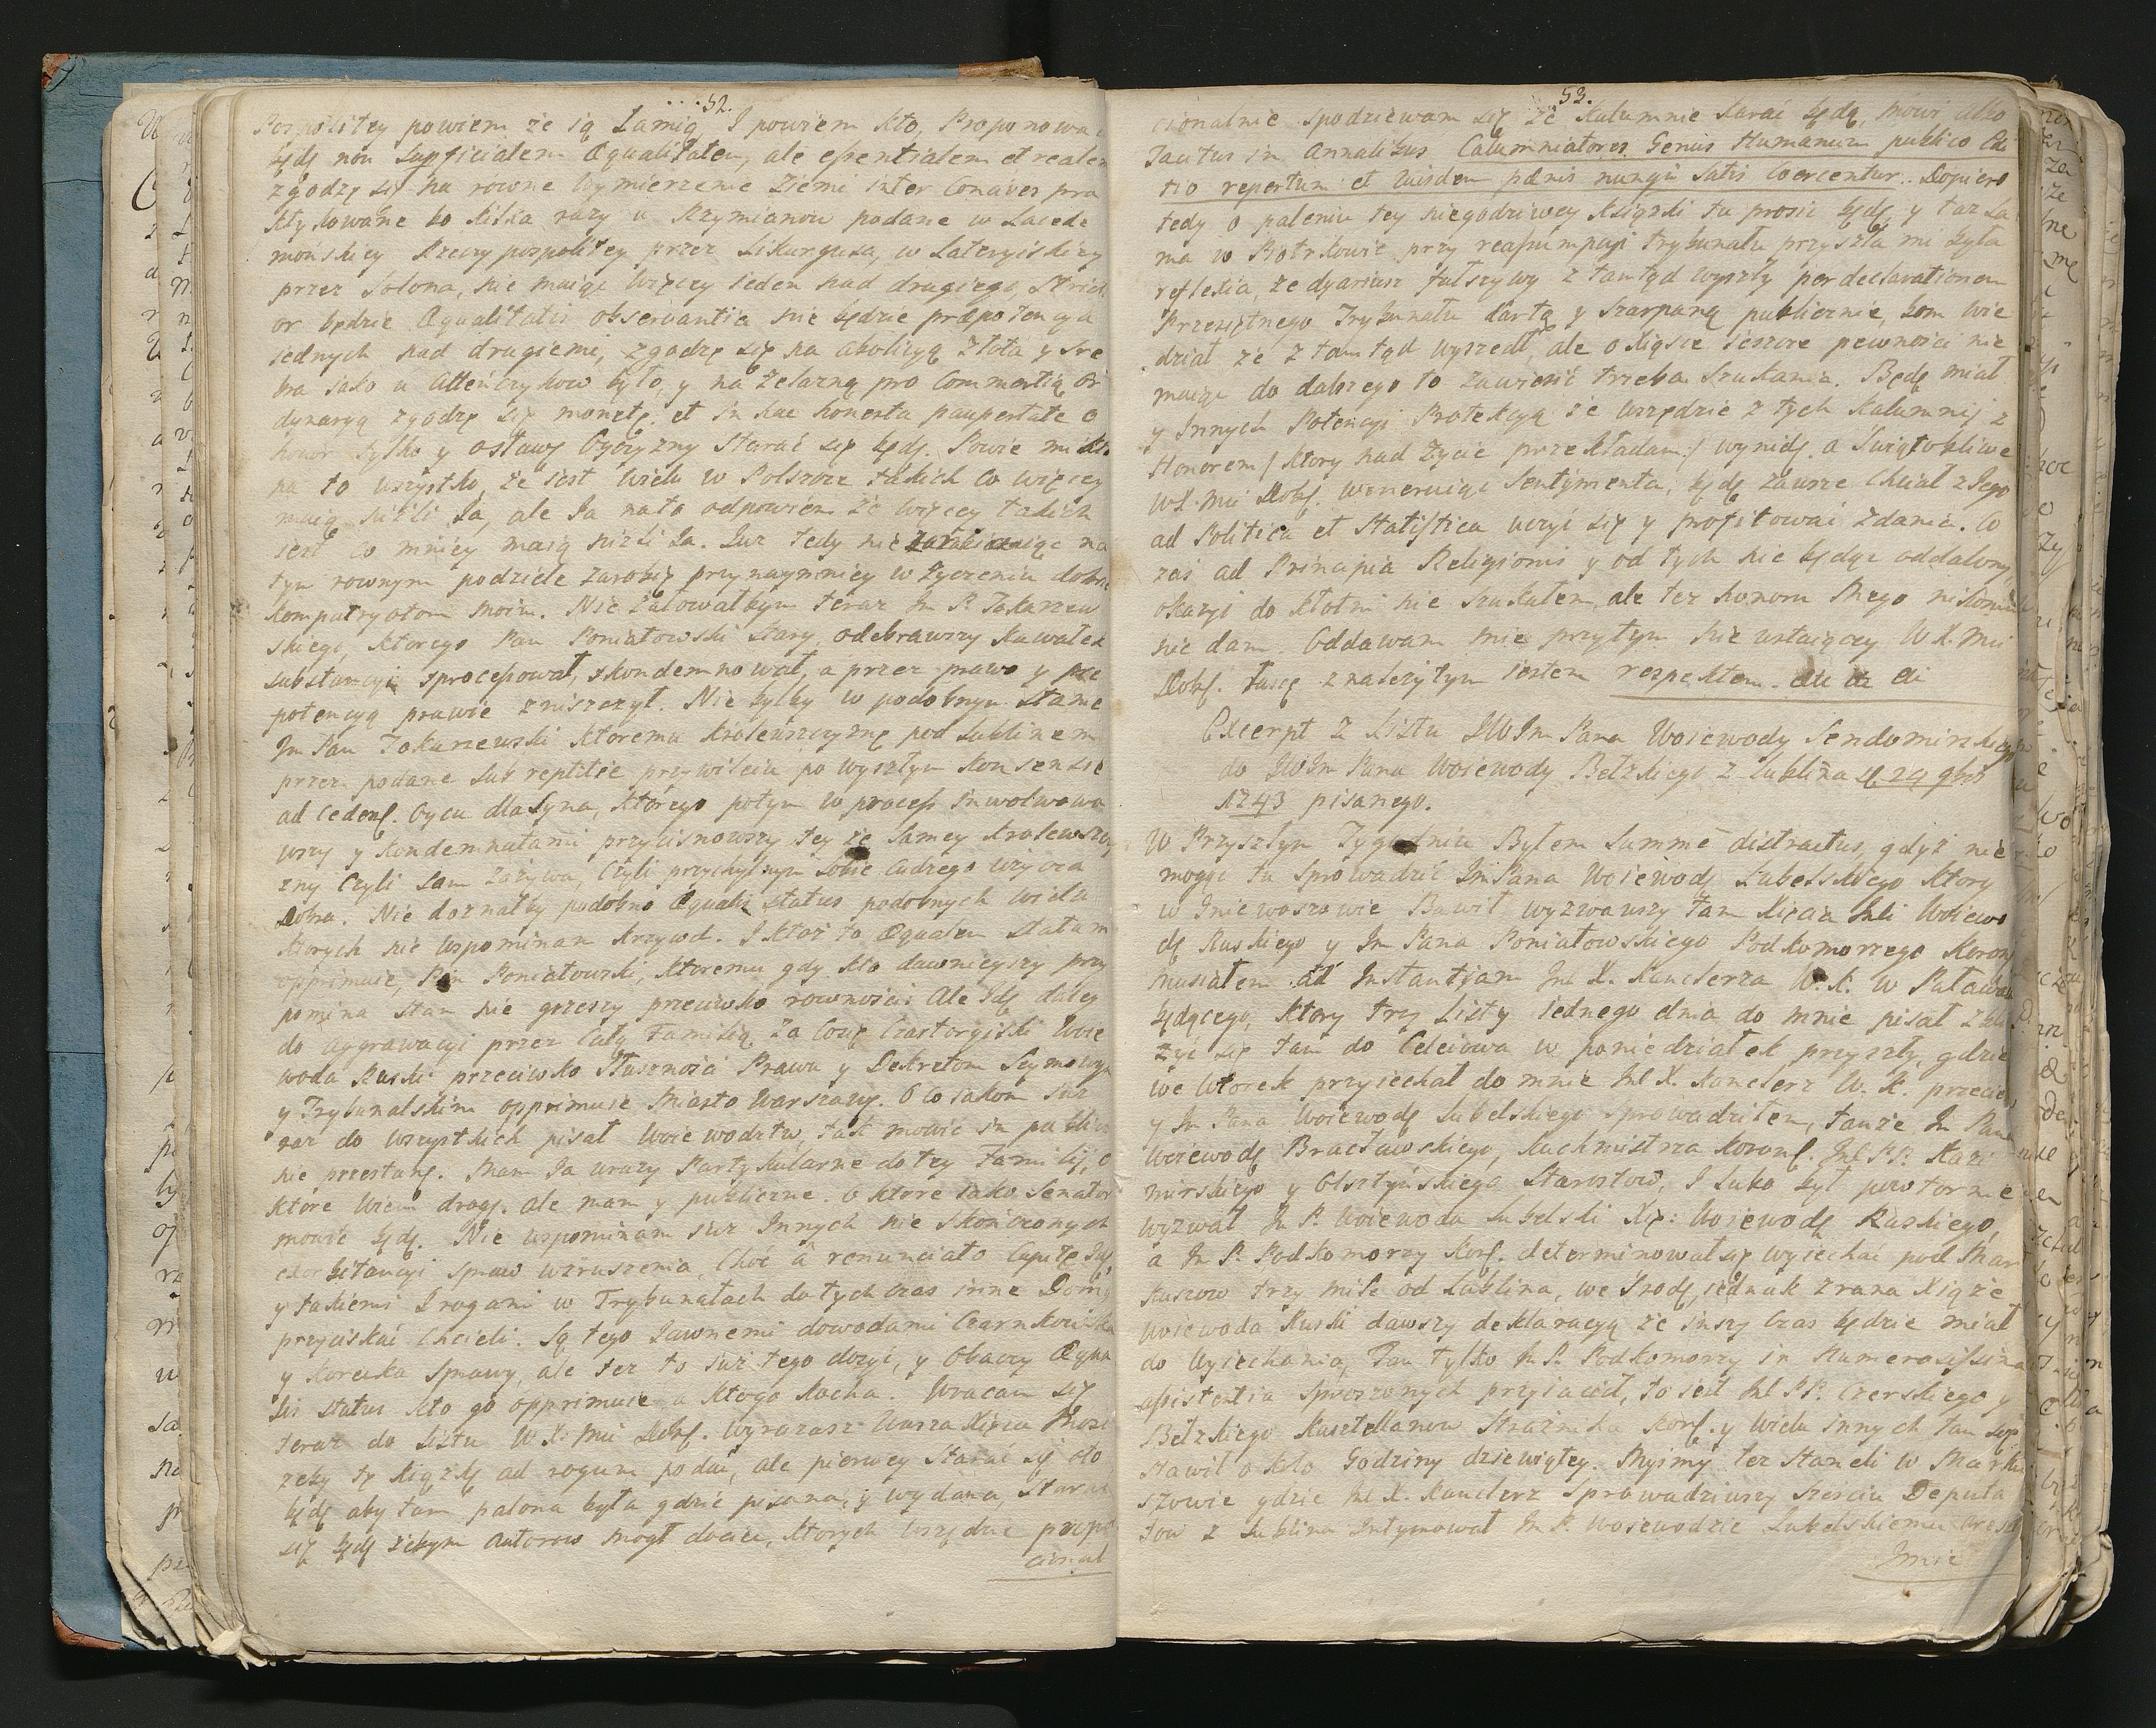 52.
Pospolitey powiem że ią Łamią, I powiem kto, Proponowa
będę non Superficialem Æqualitatem, ale essentialem et realem
zgodzę się na rowne wymierzenie Ziemi inter Concives pra
ktykowane bo kilka razy u Rzymianow podane w Lacede
mońskiey Rzeczypospolitey przez Likurgusa, w
przez Solona, nie maiąc więcey ieden nad drugiego, Strict
or będzie Æqualitatis observantia nie będzie præpotencya
iednych nad drugiemi, zgodzę się na abolicyą złota y sre
bra iako u Atteńczykow było, y na żelazną pro Commertio or
dynaryą zgodzę się monetę, et in hac honesta paupertate o
honor tylko y osławę Oyczyzny starać się będę. Powie mi kto
na to wszystko że iest wielu w Polszcze takich co więcey
maią niżli Ja, ale Ja nato odpowiem że więcey takich
iest co mniey maią niżli Ja. Juz tedy nie na
tym rownym podziele zarobię przynaymniey w życzeniu dobra
kompatryotom moim. Nie żałowałbym teraz Jm P. Tokarzew
skiego, ktorego Pan Poniatowski Stary, odebrawszy kawałek
substancyi sprocessował, skondemnował, a przez prawo y præ
potencyą prawie zniszczył. Nie byłby w podobnym Stanie
Jm Pan Tokarzewski ktoremu krolewszczyznę pod Lublinem
przez podane subreptitie przywileiu po wyszłym konsensie
ad cedend. Oycu dla Syna, ktorego potym w process inwolwowa
wszy y kondemnatami przycisnowszy tey że samey krolewszczy
zny czyli sam zażywa, czyli przychylnym sobie cudzego użycza
Dobra. Nie doznałby podobno Æqualis status podobnych wielu
ktorych nie wspominam krzywd. I ktoż to Æqualem Statum
opprimuie, Pan Poniatowski, ktoremu gdy kto dawnieyszy przy
pomina stan nie grzeszy przeciwko rowności Ale Idę daley
do aggrawacyi przez Całą Familią, Za Coż Czartoryiski Woie
woda Ruski przeciwko Słuszności Prawu y Dekretom Seymowym
y Trybunalskim opprimuie Miasto Warszawę. O co iakom iuż
raz do wszystkich pisał Woiewodztw, tak mowić in publico
nie przestanę. Mam Ja urazy Partykularne do tey Familij, o
ktore Wiem drogę. ale mam y publiczne. o ktore iako Senator
mowić będę. Nie wspominam iuż Innych nie skończonych
exorbitancyi spraw wzruszenia, Choć a renunciato
y takiemi Drogami w Trybunałach dotychczas inne Domy
przyciskać chcieli. Są tego Jawnemi dowodami Czarnkowska
y Korecka Sprawy, ale też to iuż tego dosyć, y Obaczy Æqua
lis status kto go opprimuie a ktogo kocha. Wracam się
teraz do Listu W X: Mci Dobr. Wyrażasz Wasza Xięca Mość
żeby tę książkę ad rogum podać, ale pierwey Starać się oto
będę aby tam palona była gdzie pisana, y wydana, Starać
się będę żebym Autorow mogł dociec, ktorych wszędzie propor
cional
53.
cionalnie spodziewam się że kalumnie karać będą, mowi albo
Tacitus in Annalibus Calumniatores Genus Humanum publico Exi
tio repertum et iisdem pænis nunquam satis Coercentur. Dopiero
tedy o paleniu tey niegodziwey książki tu prosić będę, y taż sa
ma w Piotrkowie przy reassumpcyi trybunału przyszła mi była
reflexia, że dyariusz fałszywy z tamtąd wyszły per declarationem
Przeswiętnego Trybunału kartą y szarpaną publicznie, bom wie
dział że z tamtąd wyszedł, ale o książce ieszcze pewności nie
maiąc do dalszego to zawiesić trzeba szukania. Będę miał
y Innych Potencyi Protekcyą że wszędzie z tych kalumnij z
Honorem /: ktory nad Życie przekładam :/ wynidę. a Świętobliwe
WX. Mci Dobr. weneruiąc Sentymenta, będę zawsze chciał z Jego
ad Politica et Statistica uczyć się y profitować zdania. Co
zaś ad Principia Religionis y od tych nie będąc oddalony
okazyi do kłotni nie szukałem, ale też honoru mego nikomu
nie dam Oddawam mię przytym nie ustaiącey WX. Mci
Dobr. łasce z należytym iestem respektem.
Excerpt z Listu JWJm Pana Woiewody Sendomirskiego
do JWJm Pana Woiewody Bełzkiego z Lublina d. 29 9bris
1743 pisanego.
W Przyszłym Tygodniu Byłem Summè distractus, gdyż nie
mogąc tu sprowadzić JmPana Woiewodę Lubelskiego ktory
w Gniewoszowie Bawił wyzwawszy tam Xięcia JMci Woiewo
dę Ruskiego y Jm Pana Poniatowskiego Podkomorzego Koron
musiałem ad Instantiam Jmć X. Kanclerza W. K. w Puławach
będącego, ktory trzy Listy iednego dnia do mnie pisał
żyć się tam do Celeiowa w poniedziałek przyszły, gdzie
we Wtorek przyiechał do mnie JmX. Kanclerz W. K. przeciw
y Jm Pana Woiewodę Lubelskiego sprowadziłem, tanże Jm Pana
Woiewodę Bracławskiego, Kuchmistrza Koronn. Jmć PP. Kazi
mirskiego y Olsztyńskiego Starostow, I lubo był powtornie
wyzwał Jm P. Woiewoda Lubelski Xię: Woiewodę Ruskiego,
a Jm P. Podkomorzy Kor. determinował się wyiechać pod Mar
kuszow trzy mile od Lublina, we Srodę, iednak zrana Xiąże
Woiewoda Ruski dawszy deklaracyą że inszy Czas będzie miał
do Wyiechania, Tan tylko Jm P. Podkomorzy in Numerosissima
assistentia sproszonych przyiacioł, to iest Jmć PP. Czerskiego y
Bełzkiego Kasztellanow Straznika Kor. y wielu innych tam się
stawił około Godziny dziewiątey. Myśmy też Staneli w Marku
szowie gdzie Jmć X. Kanclerz Sprowadziwszy Sześciu Deputa
tow z Lublina Intymował Jm P. Woiewodzie Lubelskiemu
Jmie